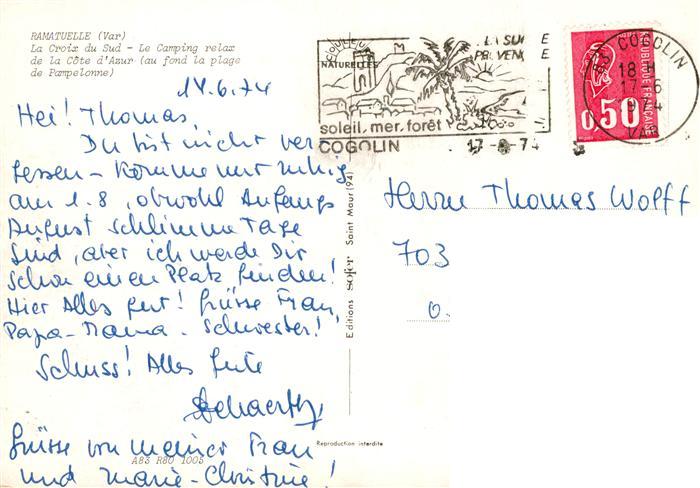 RAMATUELLE (Var)
La Croix du Sud - Le Camping relax
de la Côte d'Azur (au fond la plage
de Pampelonne)
14.6.74
Hei! Thomas,
Du bist nicht ver
gessen - komme nur ruhig
am 1.8, obwohl Anfangs
August schlimme Tage
sind, aber ich werde Dir
schon einen Platz finden!
Hier Alles gut! Grüsse Frau,
Papa - Mama - Schwester!
Schuss! Alles Gute
Grüsse von meiner Frau
und Marie-Christine!
A83 R80 1005
Editions sofer Saint Maur (94)
Reproduction interdite
COULEURS
NATURELLES
LA SUR E
PROVENCE
soleil, mer, forêt
COGOLIN
17-6-74
83 COGOLIN
18 H
17-6
1974
VAR
REPUBLIQUE FRANÇAISE
0,50
Herrn Thomas Wolff
703
o.